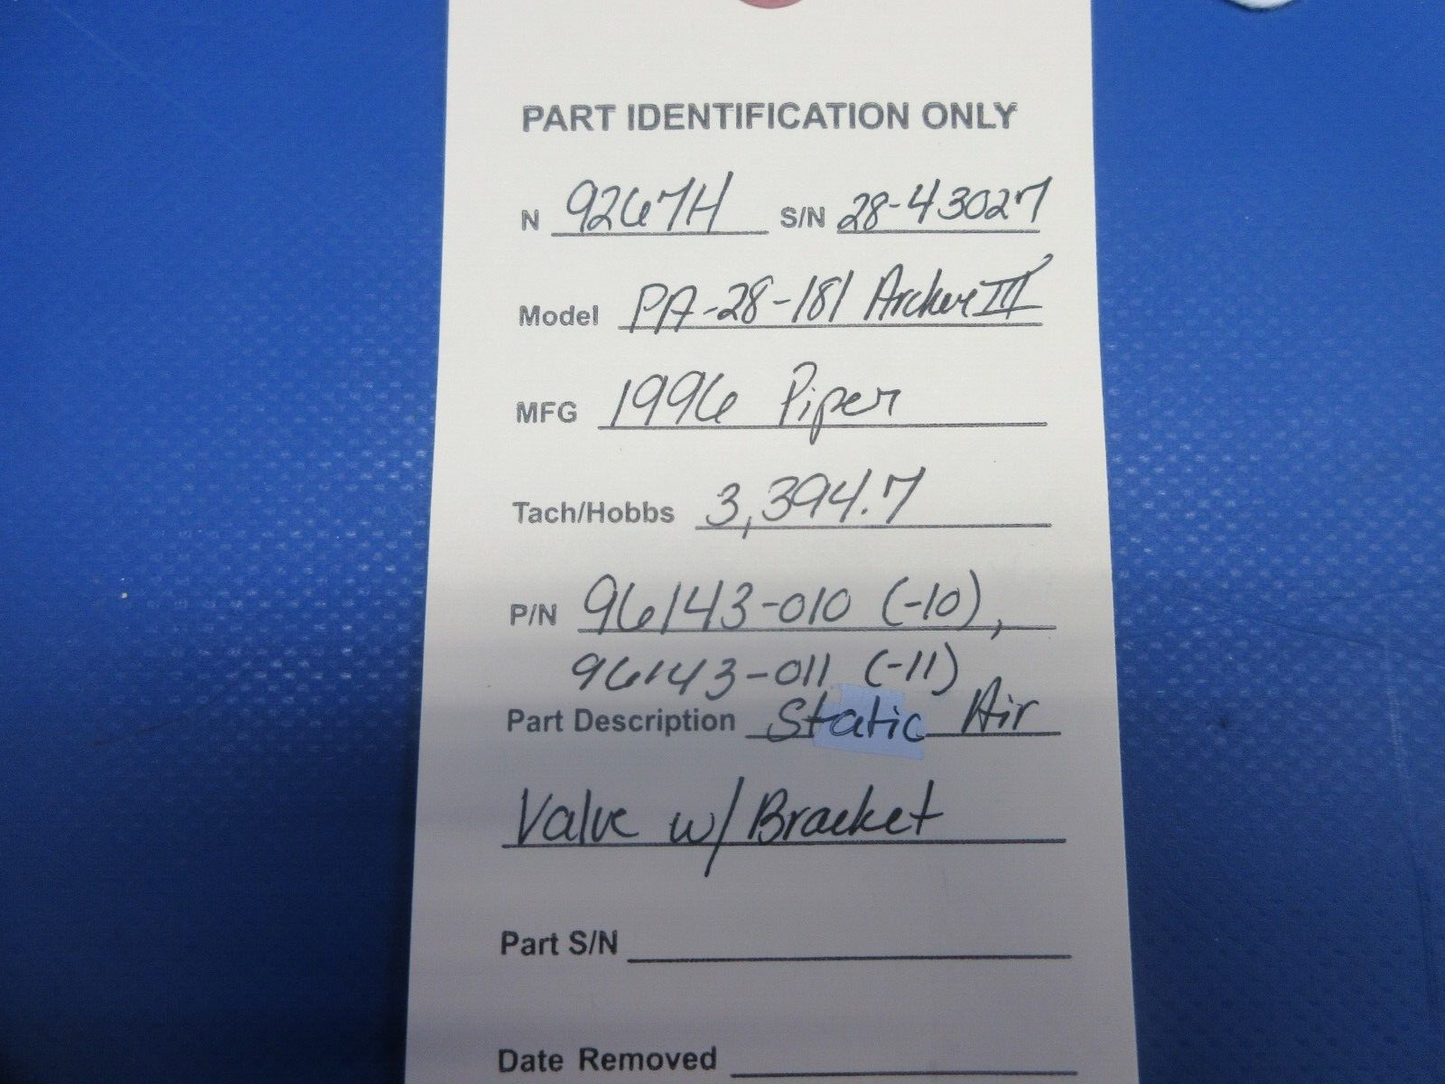 PART IDENTIFICATION ONLY
N 9267H S/N 28-43027
Model PA-28-181 Archer III
MFG 1996 Piper
Tach/Hobbs 3,394.7
P/N 96143-010 (-10),
96143-011 (-11)
Part Description Static Air
Valve w/ Bracket
Part S/N
Date Removed